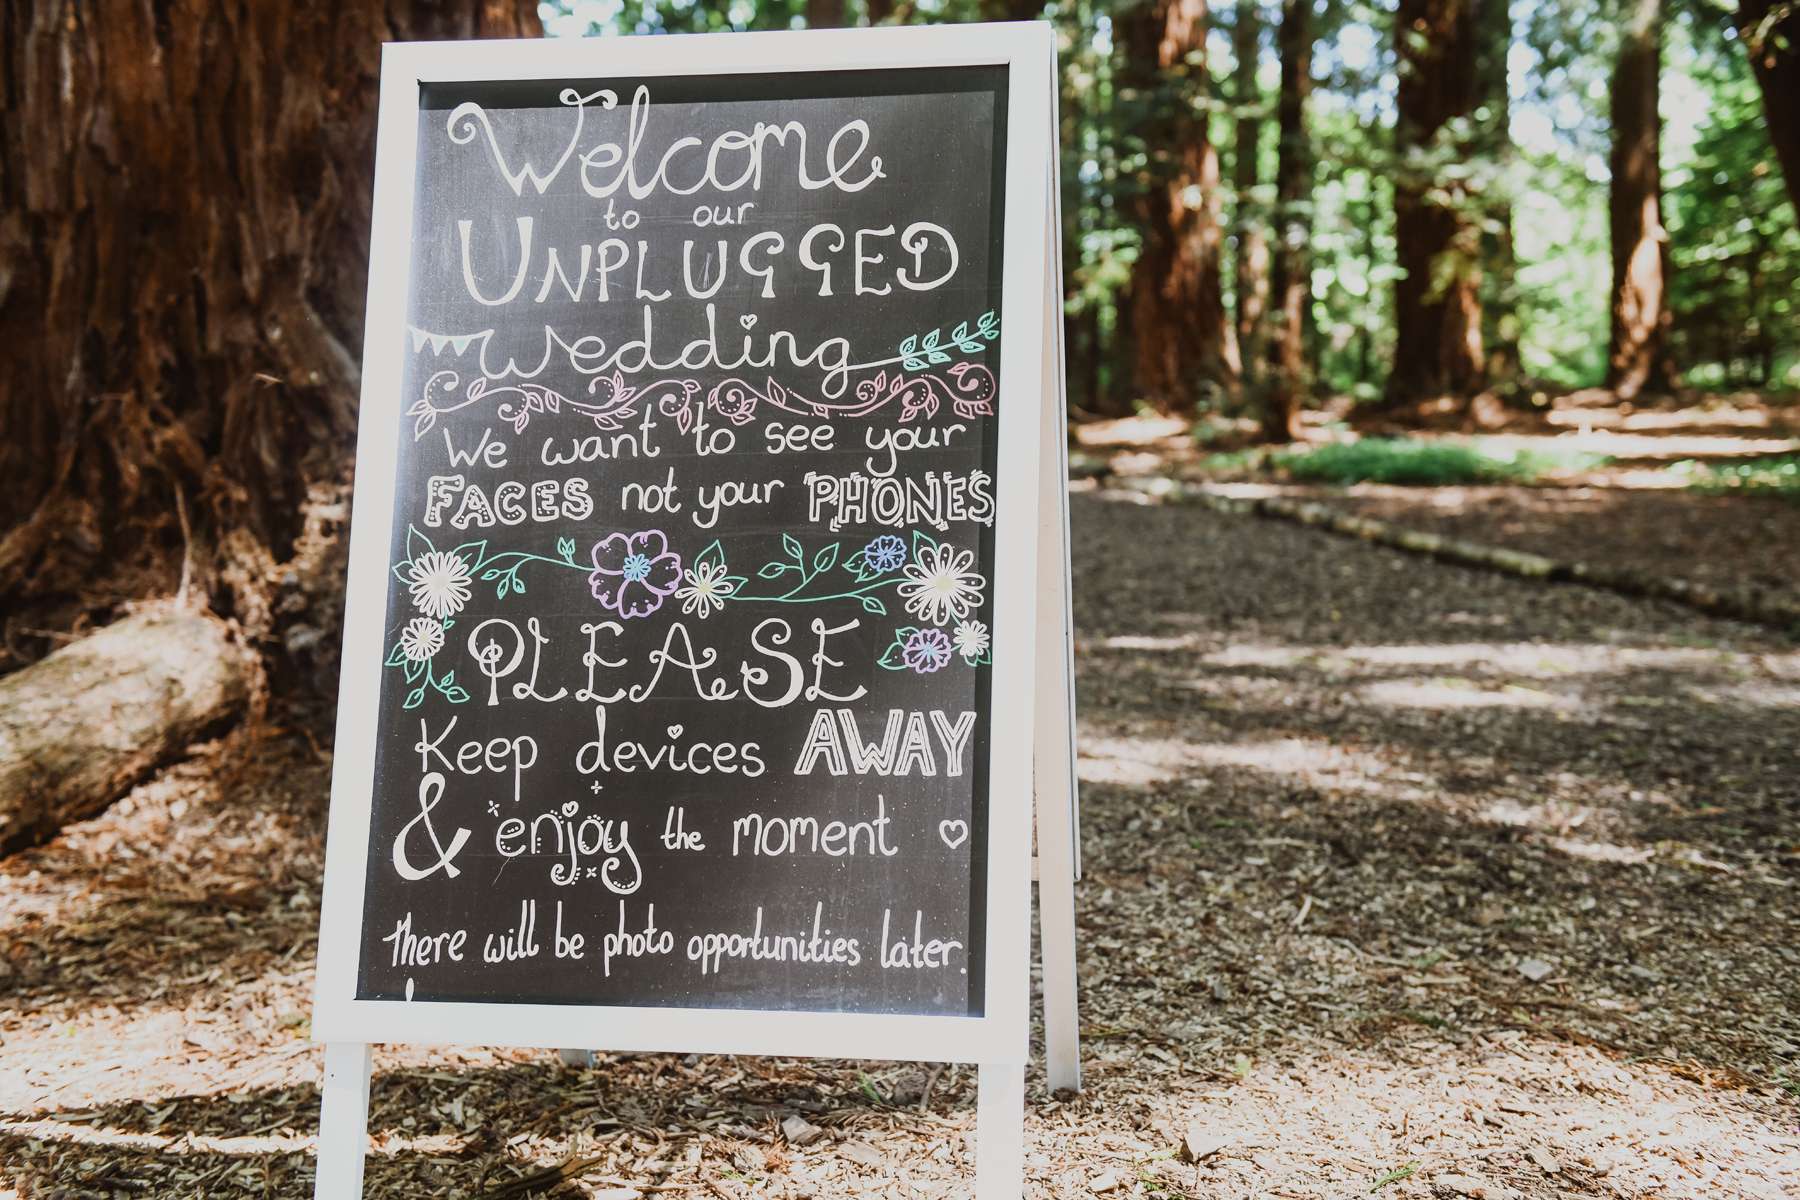 Welcome
to our
UNPLUGGED
wedding
We want to see your
FACES not your PHONES
PLEASE
Keep devices AWAY
& enjoy the moment
there will be photo opportunities later.